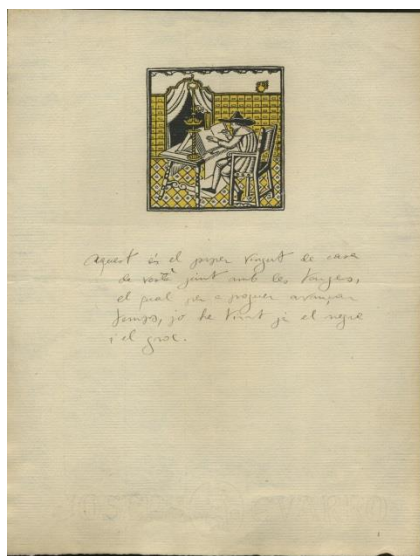 Aquest és el paper vingut de casa
de vostè junt amb les tanges,
el qual per a poguer avançar
temps, jo he tirat ja el negre
i el groc.